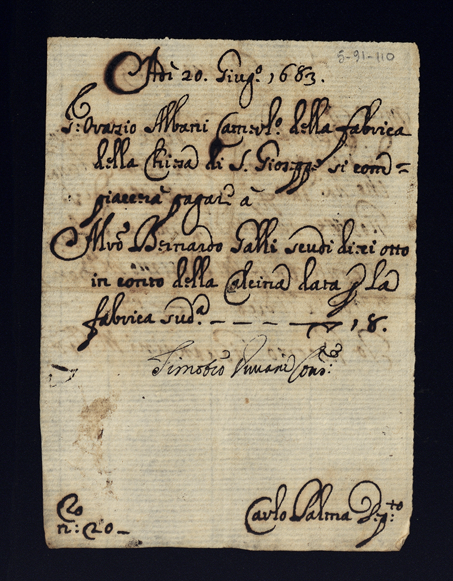 5-91-110
Adì 20. Giug.º 1683.
S: Orazio Albani Camerl.º della fabrica
della Chiesa di S. Gioseppe si com=
piacerà pagar. à
Mrõ Bernardo Galli scudi dieci otto
in conto della Calcina data p la
fabrica sud.ª — — — — 18.
Timoteo
n: 20 —
Carlo Palma D:p:to